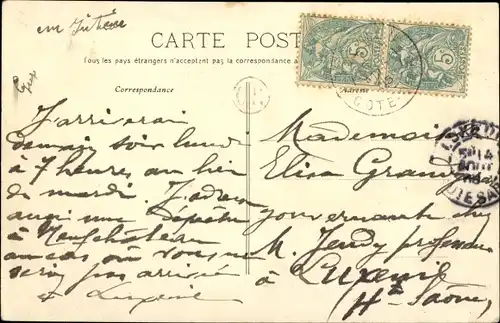 CARTE POST
Tous les pays étrangers n'acceptent pas la correspondance a
Correspondance
Adresse
5
5
J'arriverai
demain soir lundi
à 7 heures au lieu
de mardi. J'adresse
aussi une depeche
à Neufchâteau
au cas où vous ne
seriez pas arrivée
Mademoise
Elisa Grand
gouvernante chez
M. Jendy professeur
à Luxeuil
Hte Saône